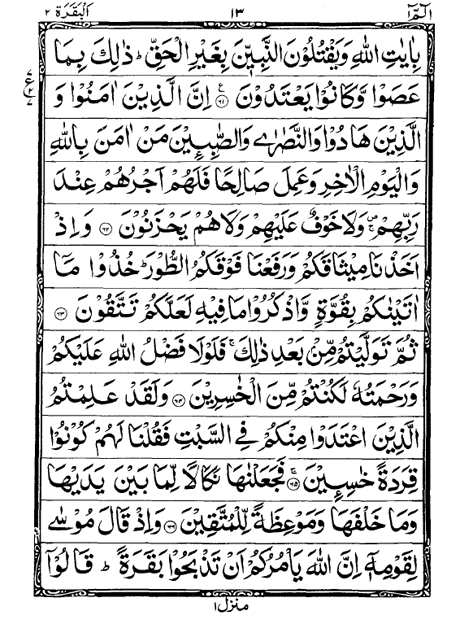 الٓمّٓ ١
١٣
الْبَقَرَة ٢
بِاٰيٰتِ اللّٰهِ وَيَقْتُلُوْنَ النَّبِيّٖنَ بِغَيْرِ الْحَقِّ ؕ ذٰلِكَ بِمَا
عَصَوْا وَّكَانُوْا يَعْتَدُوْنَ ﴿٦١﴾ اِنَّ الَّذِيْنَ اٰمَنُوْا وَ
الَّذِيْنَ هَادُوْا وَالنَّصٰرٰى وَالصّٰبِـِٕيْنَ مَنْ اٰمَنَ بِاللّٰهِ
وَالْيَوْمِ الْاٰخِرِ وَعَمِلَ صَالِحًا فَلَهُمْ اَجْرُهُمْ عِنْدَ
رَبِّهِمْ ۚ وَلَا خَوْفٌ عَلَيْهِمْ وَلَا هُمْ يَحْزَنُوْنَ ﴿٦٢﴾ وَاِذْ
اَخَذْنَا مِيْثَاقَكُمْ وَرَفَعْنَا فَوْقَكُمُ الطُّوْرَ ؕ خُذُوْا مَآ
اٰتَيْنٰكُمْ بِقُوَّةٍ وَّاذْكُرُوْا مَا فِيْهِ لَعَلَّكُمْ تَتَّقُوْنَ ﴿٦٣﴾
ثُمَّ تَوَلَّيْتُمْ مِّنْۢ بَعْدِ ذٰلِكَ ۚ فَلَوْلَا فَضْلُ اللّٰهِ عَلَيْكُمْ
وَرَحْمَتُهٗ لَكُنْتُمْ مِّنَ الْخٰسِرِيْنَ ﴿٦٤﴾ وَلَقَدْ عَلِمْتُمُ
الَّذِيْنَ اعْتَدَوْا مِنْكُمْ فِى السَّبْتِ فَقُلْنَا لَهُمْ كُوْنُوْا
قِرَدَةً خٰسِـِٕيْنَ ﴿٦٥﴾ فَجَعَلْنٰهَا نَكَالًا لِّمَا بَيْنَ يَدَيْهَا
وَمَا خَلْفَهَا وَمَوْعِظَةً لِّلْمُتَّقِيْنَ ﴿٦٦﴾ وَاِذْ قَالَ مُوْسٰى
لِقَوْمِهٖٓ اِنَّ اللّٰهَ يَاْمُرُكُمْ اَنْ تَذْبَحُوْا بَقَرَةً ؕ قَالُوْٓا
منزل ١